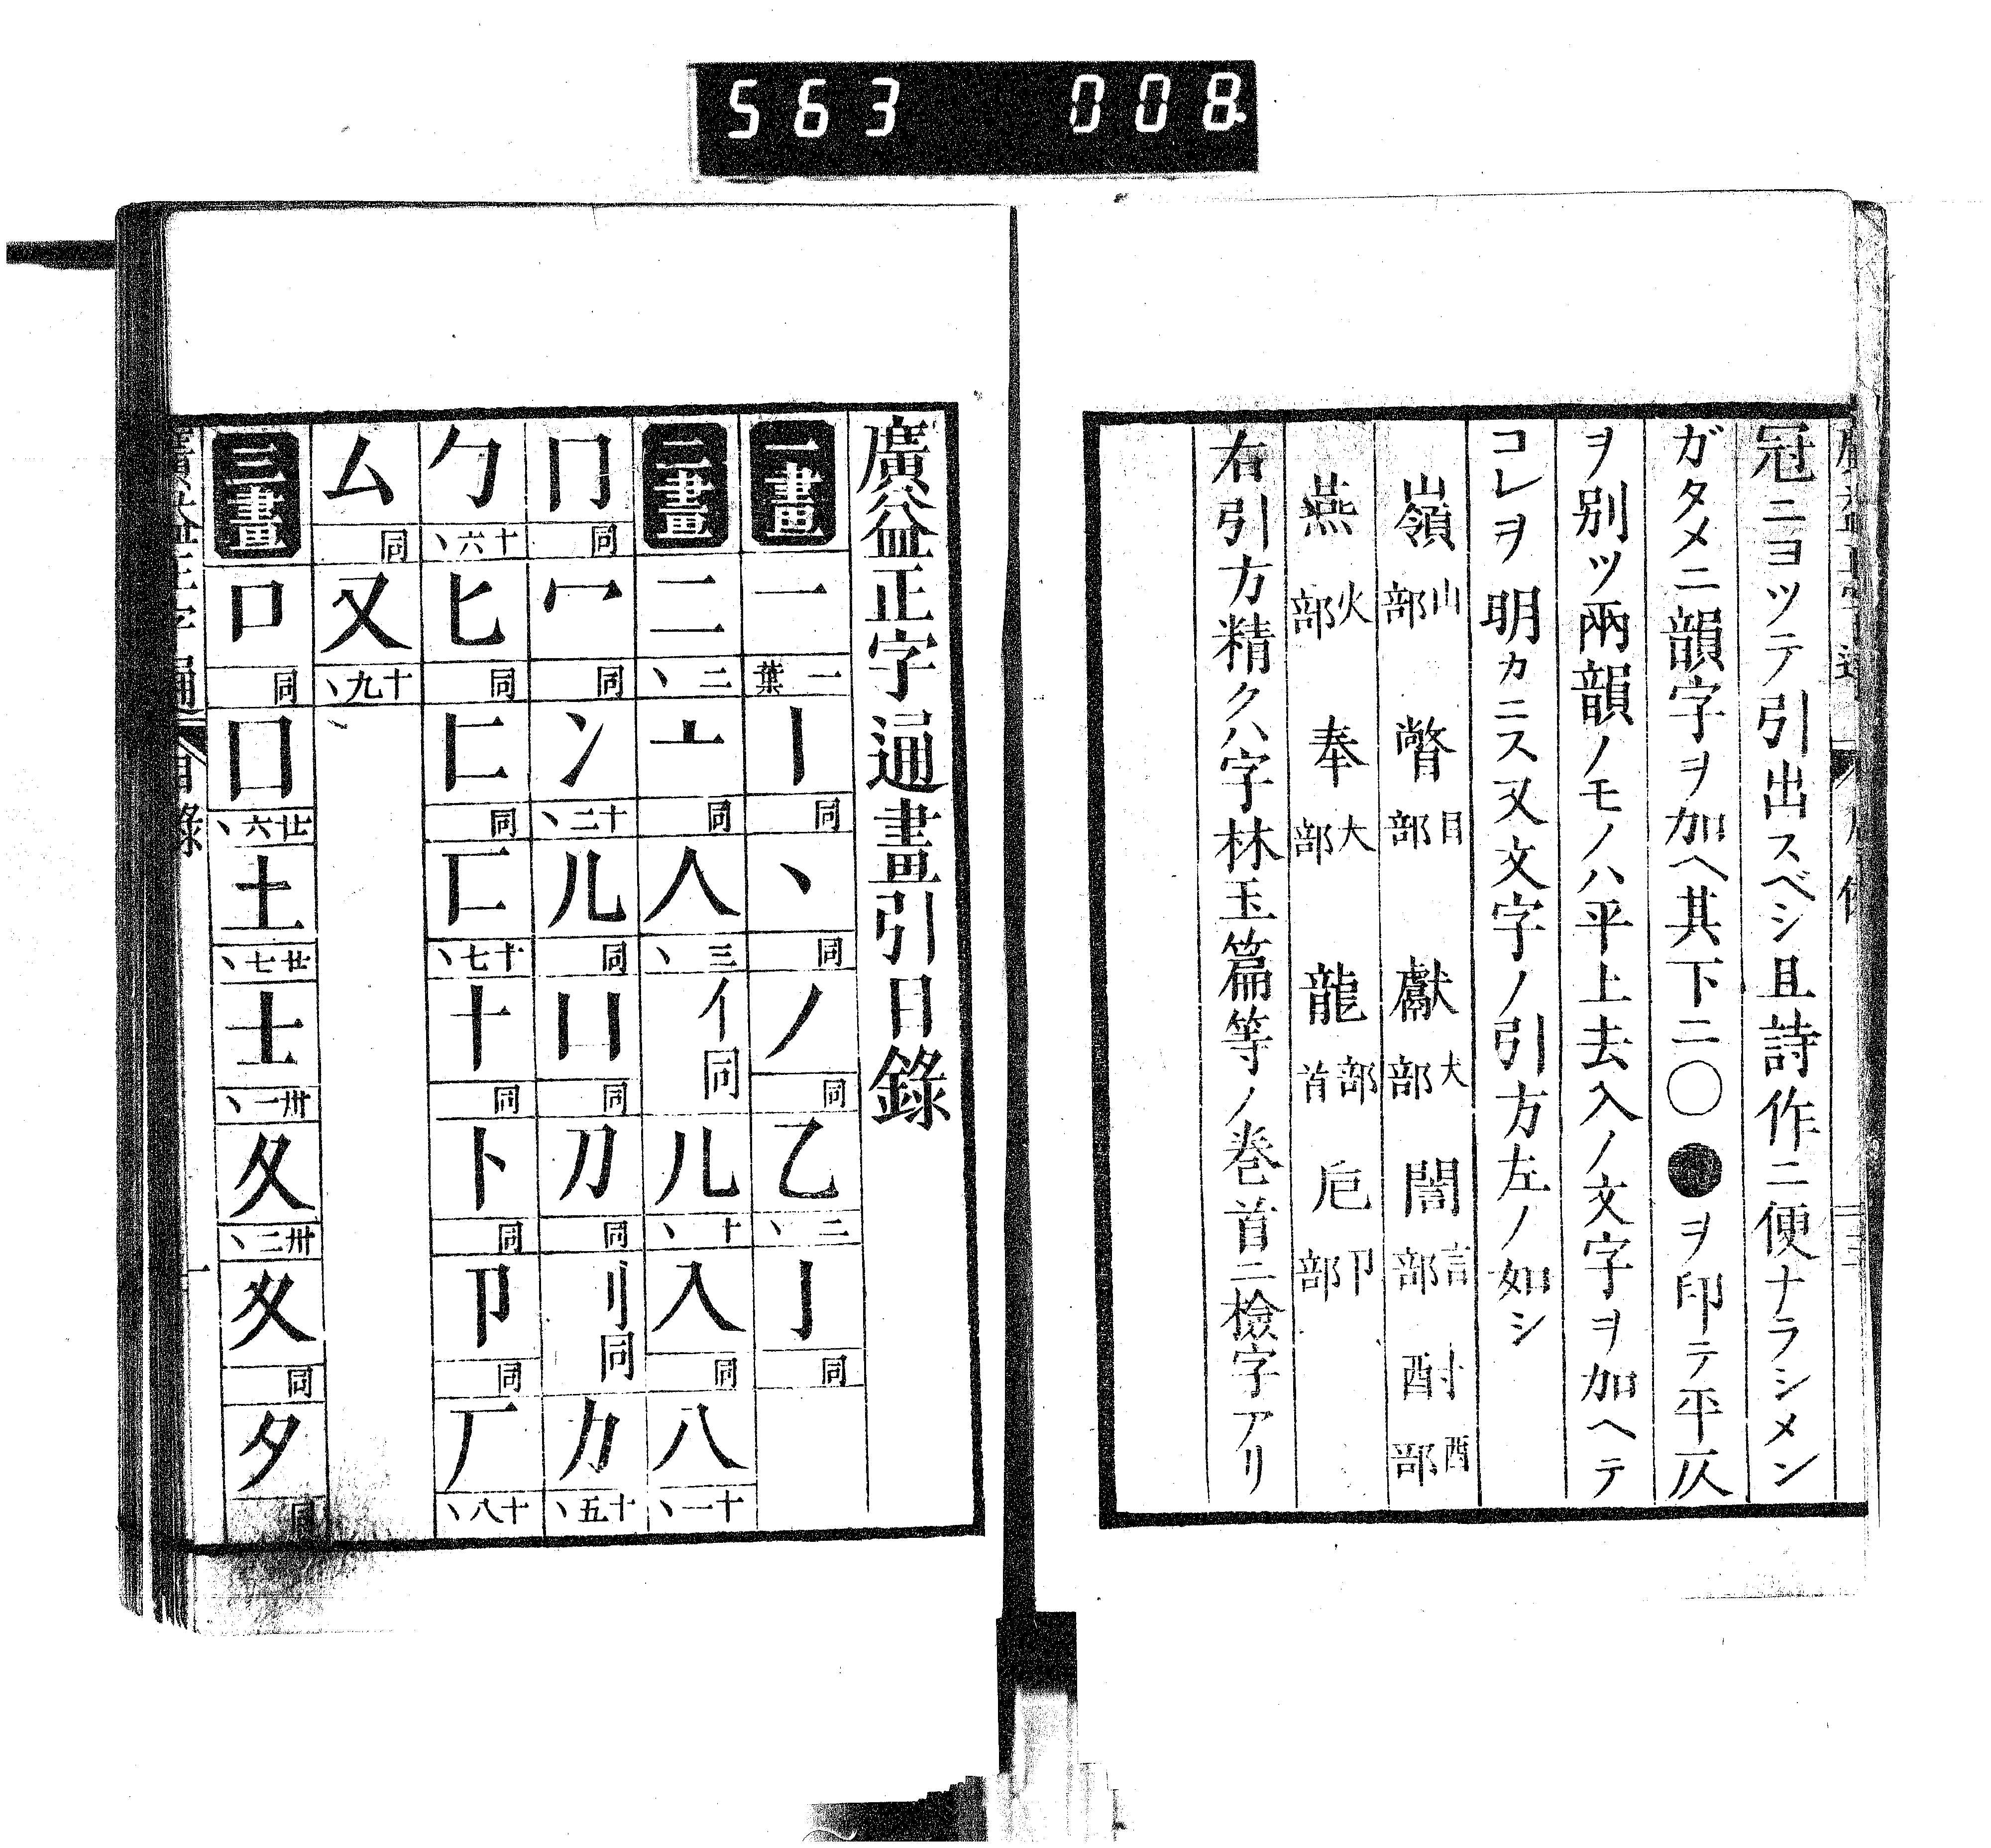 563 008
冠ニヨツテ引出スベシ且詩作ニ便ナラシメン
ガタメニ韻字ヲ加ヘ其下ニ〇●ヲ印テ平仄
ヲ別ツ兩韻ノモノハ平上去入ノ文字ヲ加ヘテ
コレヲ明カニス又文字ノ引方左ノ如シ
嶺 山部 瞥 目部 獻 犬部 誾 言部 酎 酉部
燕 火部 奉 大部 龍 部首 卮 卩部
右引方精クハ字林玉篇等ノ巻首ニ檢字アリ
廣益正字通畫引目錄
一畫 一 一葉 丨 同 丶 同 丿 同 乙 二丶 亅 同
二畫 二 二丶 亠 同 人 三丶 亻同 儿 十丶 入 同 八 十一丶
冂 同 冖 同 冫 十二丶 几 同 凵 同 刀 同 刂同 力 十五丶
勹 十六丶 匕 同 匚 同 匸 十七丶 十 同 卜 同 卩 同 厂 十八丶
厶 同 又 十九丶
三畫 口 同 囗 廿六丶 土 廿七丶 士 卅一丶 夂 卅二丶 夊 同 夕 同
目錄 一